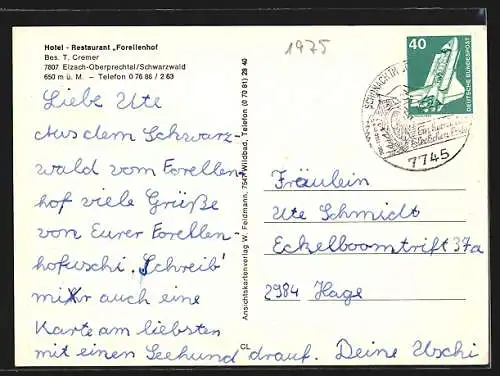 Hotel - Restaurant „Forellenhof
Bes. T. Cremer
7807 Elzach-Oberprechtal/Schwarzwald
650 m ü. M. – Telefon 0 76 86 / 2 63
1975
Liebe Ute
Aus dem Schwarz-
wald vom Forellen-
hof viele Grüße
von Eurer Forellen-
hofuschi. Schreib'
mir auch eine
Karte am liebsten
mit einen Seehund drauf. Deine Uschi
Ansichtskartenverlag W. Feldmann, 7547 Wildbad, Telefon (0 70 81) 28 40
CL
40
DEUTSCHE BUNDESPOST
SCHONACH IM
7745
Fräulein
Ute Schmidt
Eckelboomtrift 37a
2984 Hage